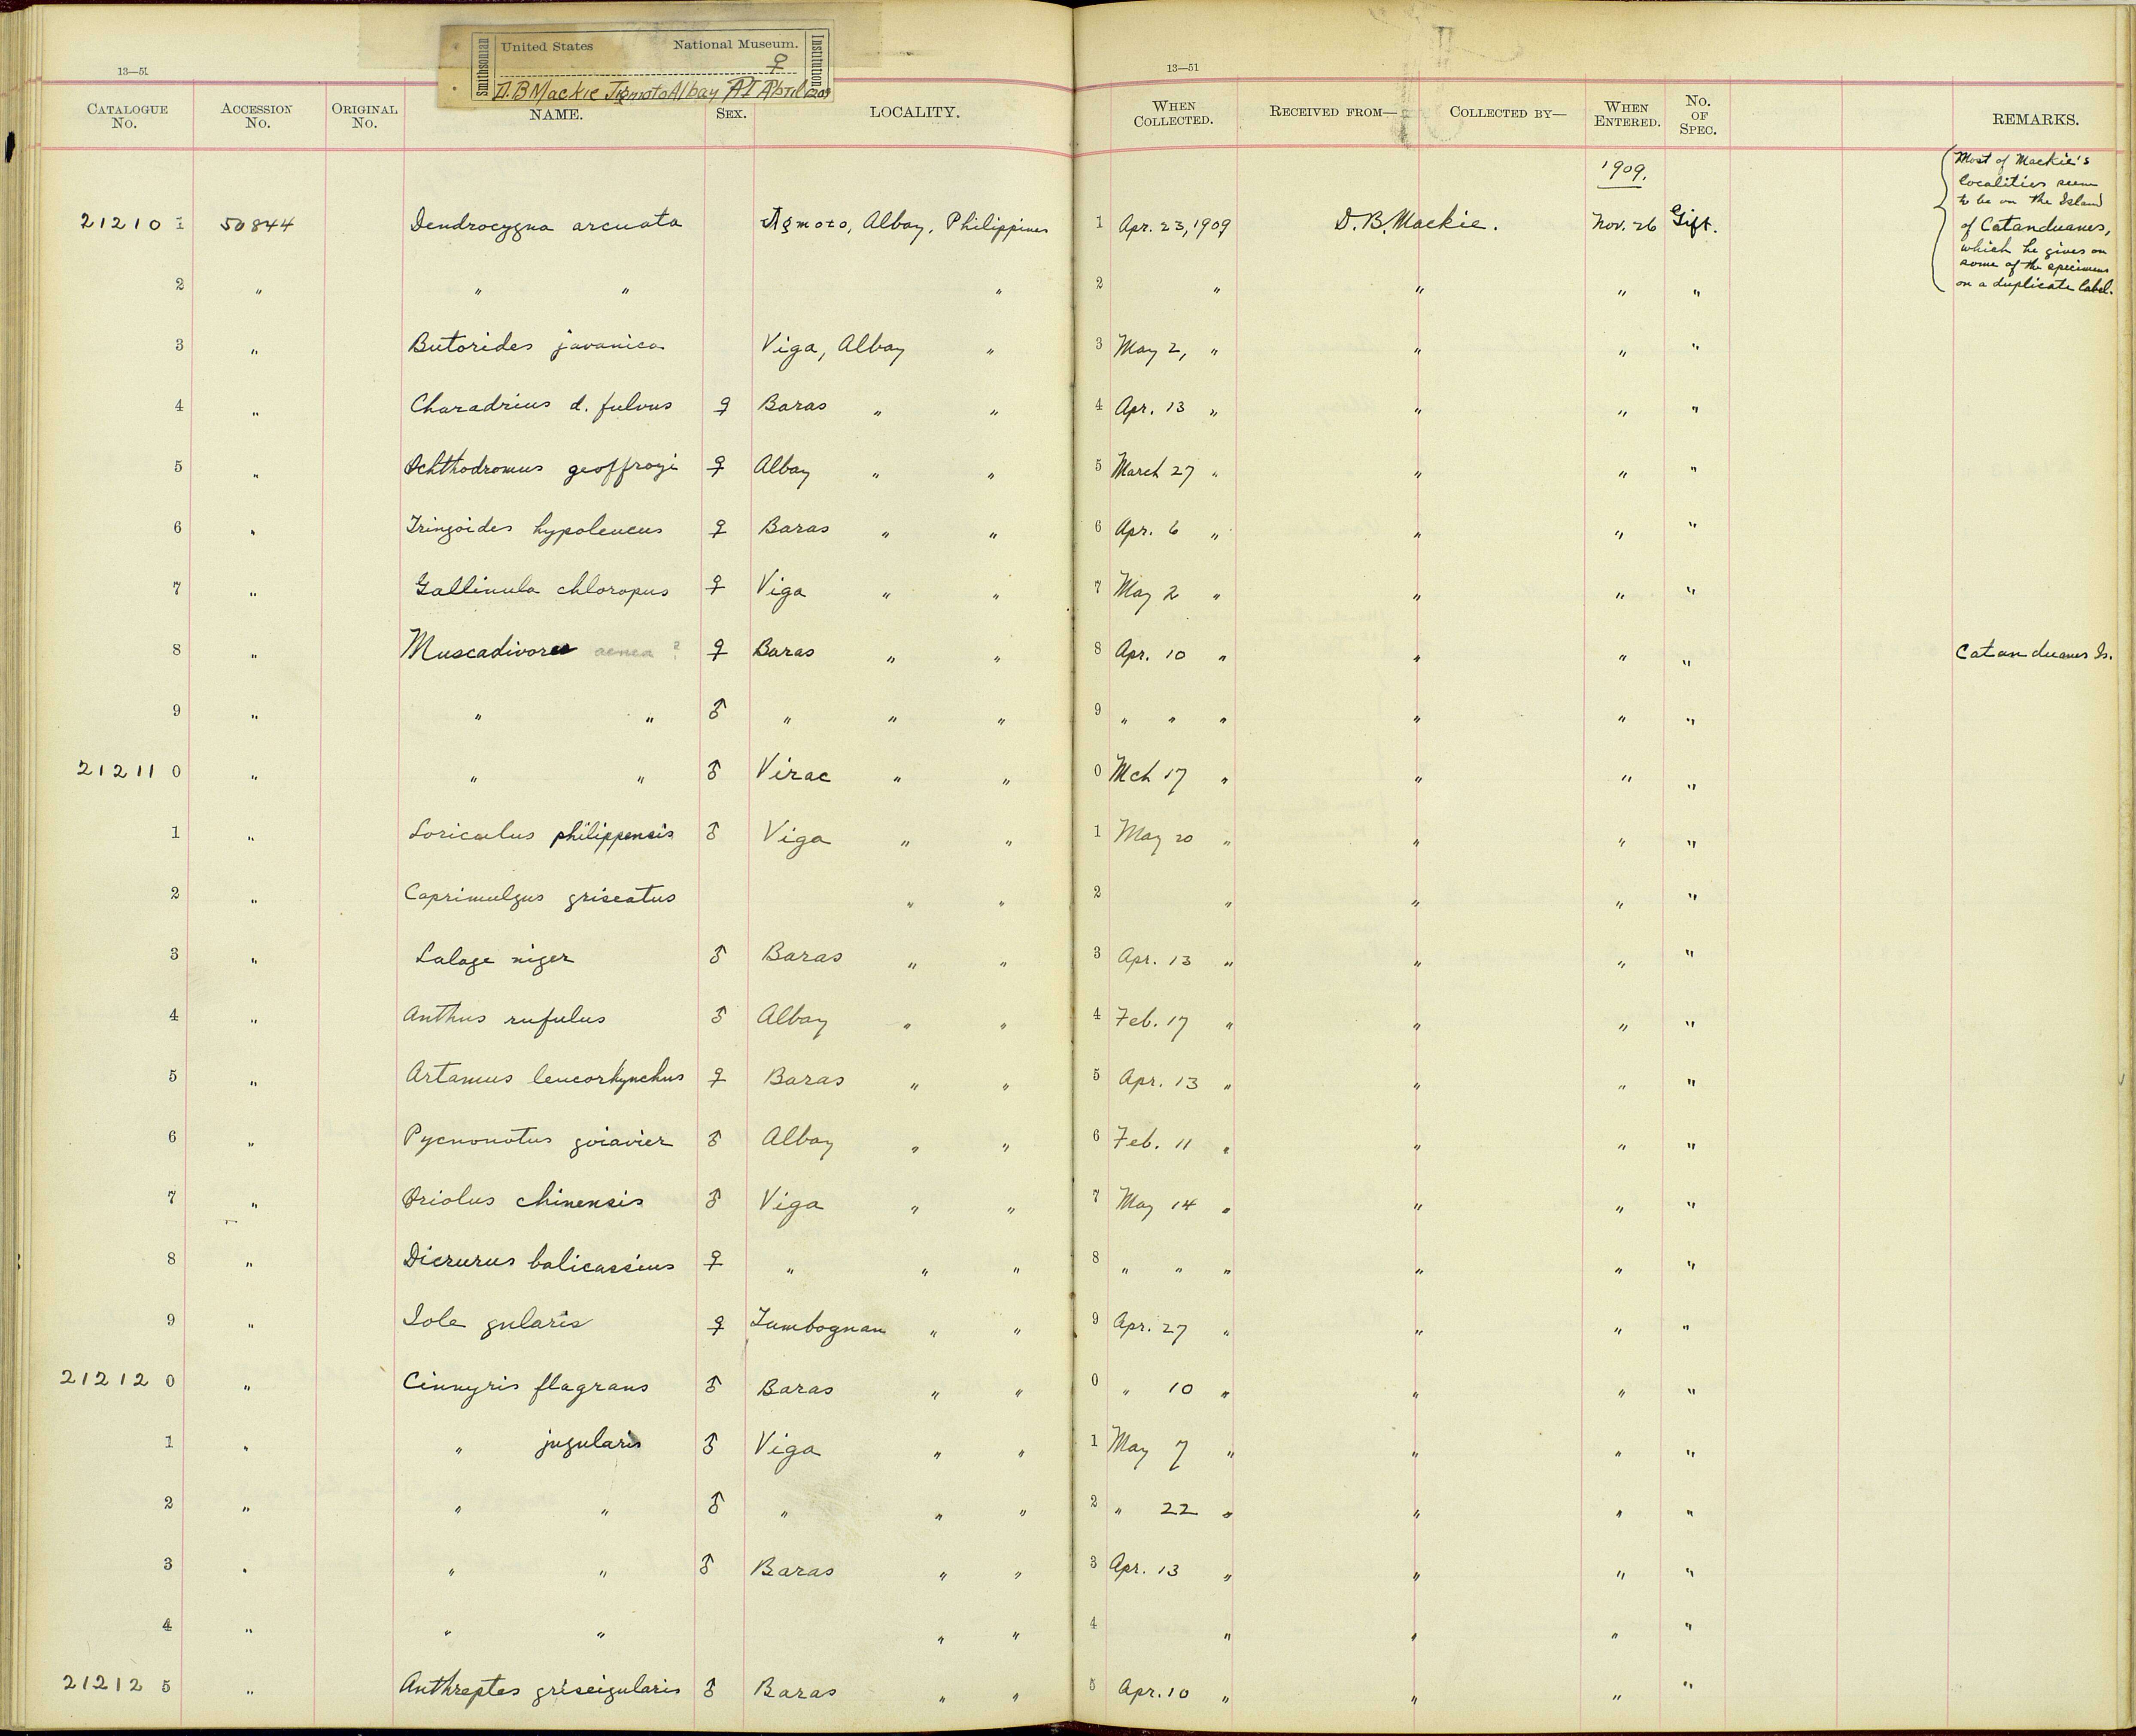 United States National Museum.
Smithsonian Institution
♀
D.B Mackie Albay PI April 1909
13—51
13—51
Catalogue No. Accession No. Original No. NAME. Sex. LOCALITY. When Collected. Received from— Collected by— When Entered. No. of Spec. REMARKS.
1909.
Most of Mackie's
localities seem
to be on the Island
of Catanduanes,
which he gives on
some of the specimens
on a duplicate label.
21210 1 50844 Dendrocygna arcuata Albay, Philippines 1 Apr. 23, 1909 D. B. Mackie. Nov. 26 Gift.
2 " " " " 2 " " " "
3 " Butorides javanica Viga, Albay " 3 May 2, " " " "
4 " Charadrius d. fulvus ♀ Baras " " 4 Apr. 13 " " " "
5 " Ochthodromus geoffroyi ♀ Albay " " 5 March 27 " " " "
6 " Tringoides hypoleucus ♀ Baras " " 6 Apr. 6 " " " "
7 " Gallinula chloropus ♀ Viga " " 7 May 2 " " " "
8 " Muscadivores aenea ? ♀ Baras " " 8 Apr. 10 " " " " Catanduanes Is.
9 " " " ♂ " " " 9 " " " " " "
21211 0 " " " ♂ Virac " " 0 Mch 17 " " " "
1 " Loriculus philippensis ♂ Viga " " 1 May 20 " " " "
2 " Caprimulgus griseatus " " 2 " " " "
3 " Lalage niger ♂ Baras " " 3 Apr. 13 " " " "
4 " Anthus rufulus ♂ Albay " " 4 Feb. 17 " " " "
5 " Artamus leucorhynchus ♀ Baras " " 5 Apr. 13 " " " "
6 " Pycnonotus goiavier ♂ Albay " " 6 Feb. 11 " " " "
7 " Oriolus chinensis ♂ Viga " " 7 May 14 " " " "
8 " Dicrurus balicassius ♀ " " " 8 " " " " " "
9 " Iole gularis ♀ " " 9 Apr. 27 " " " "
21212 0 " Cinnyris flagrans ♂ Baras " " 0 " 10 " " " "
1 " " jugularis ♂ Viga " " 1 May 7 " " " "
2 " " " ♂ " " " 2 " 22 " " " "
3 " " " ♂ Baras " " 3 Apr. 13 " " " "
4 " " " " " 4 " " " "
21212 5 " Anthreptes griseigularis ♂ Baras " " 5 Apr. 10 " " " "